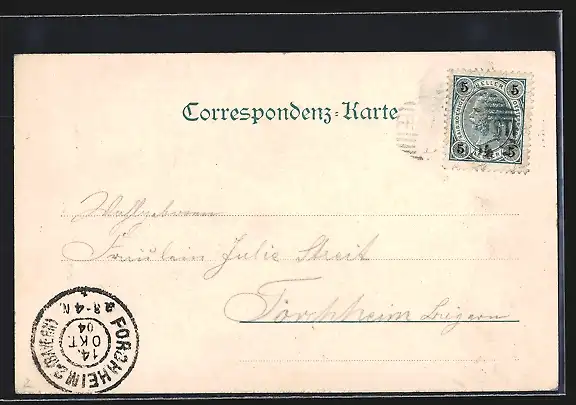 Correspondenz-Karte
5 HELLER 5
5 5
Wohlgeboren
Fräulein Julie Streit
Forchheim
FORCHHEIM 2. (BAYERN)
14. OKT. 04